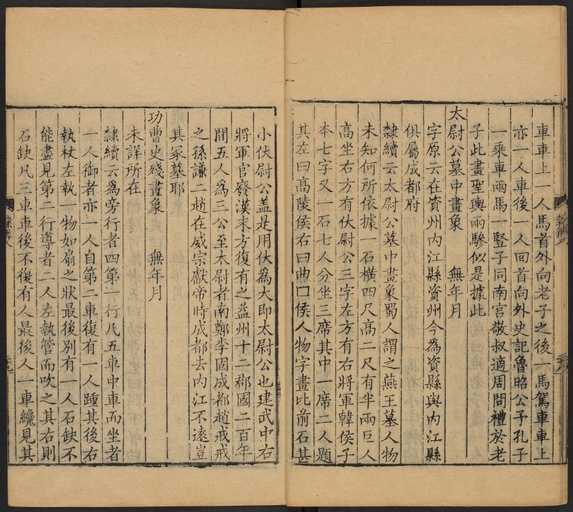 車車上一人馬首外向老子之後一馬駕車車上
亦一人車後一人回首向外史記魯昭公子孔子
一乗車兩馬一豎子同南宫敬叔適周問禮於老
子此畫聖輿兩驂似是據此
太尉公墓中畫象 無年月
字原云在資州内江縣資州今為資縣與内江縣
俱屬成都府
隸續云太尉公墓中畫象蜀人謂之燕王墓人物
未知何所依據一石横四尺髙二尺有半兩巨人
高坐右方有伏尉公三字左方有右將軍韓侯子
本七字又一石七人分坐三席其中一席二人題
其左曰髙陵侯右曰曲囗侯人物字畫比前石甚
小伏尉公蓋是用伏為大即太尉公也建武中右
將軍官廢漢末方復有之益州十二郡國二百年
間五人為三公至太尉者南鄭李固成都趙戒戒
之孫謙二趙在威宗獻帝時成都去内江不逺豈
其冢墓耶
功曹史殘畫象 無年月
未詳所在
隸續云為旁行者四第一行凡五車中車而坐者
一人御者亦一人自第二車復有一人踵其後右
執杖左執一物如扇之狀最後别有一人石缺不
能盡見第二行導者二人左執管而吹之其右則
石缺凡三車車後不復有人最後人一車纔見其